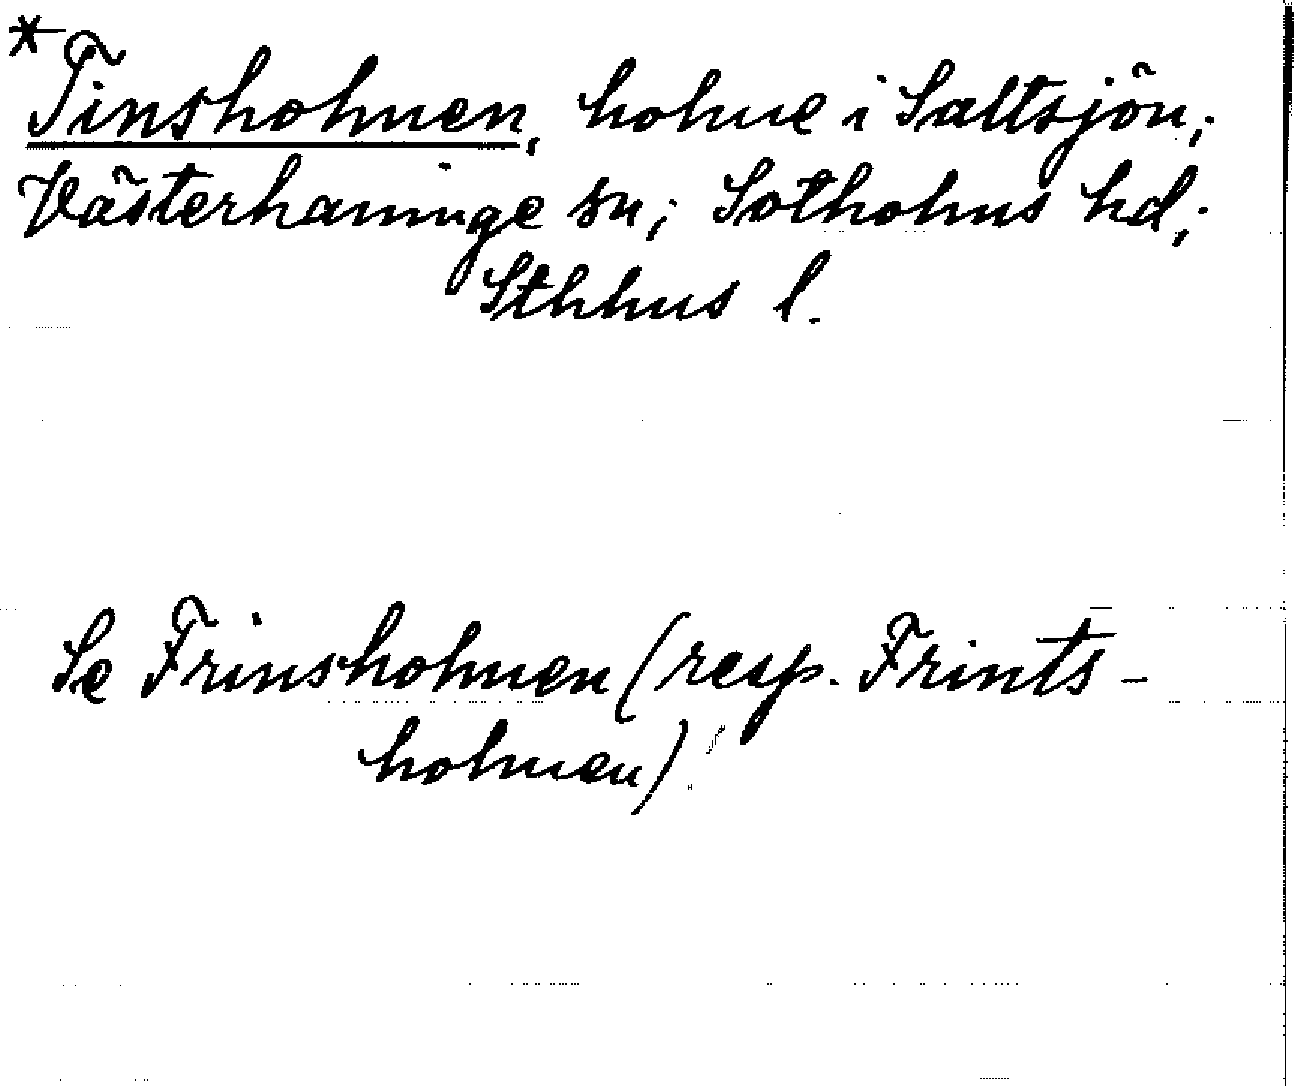 *Tinsholmen, holme i Saltsjön;
Västerhaninge sn; Sotholms hd;
Sthlms l.
Se Frinsholmen (resp. Frints-
holmen).